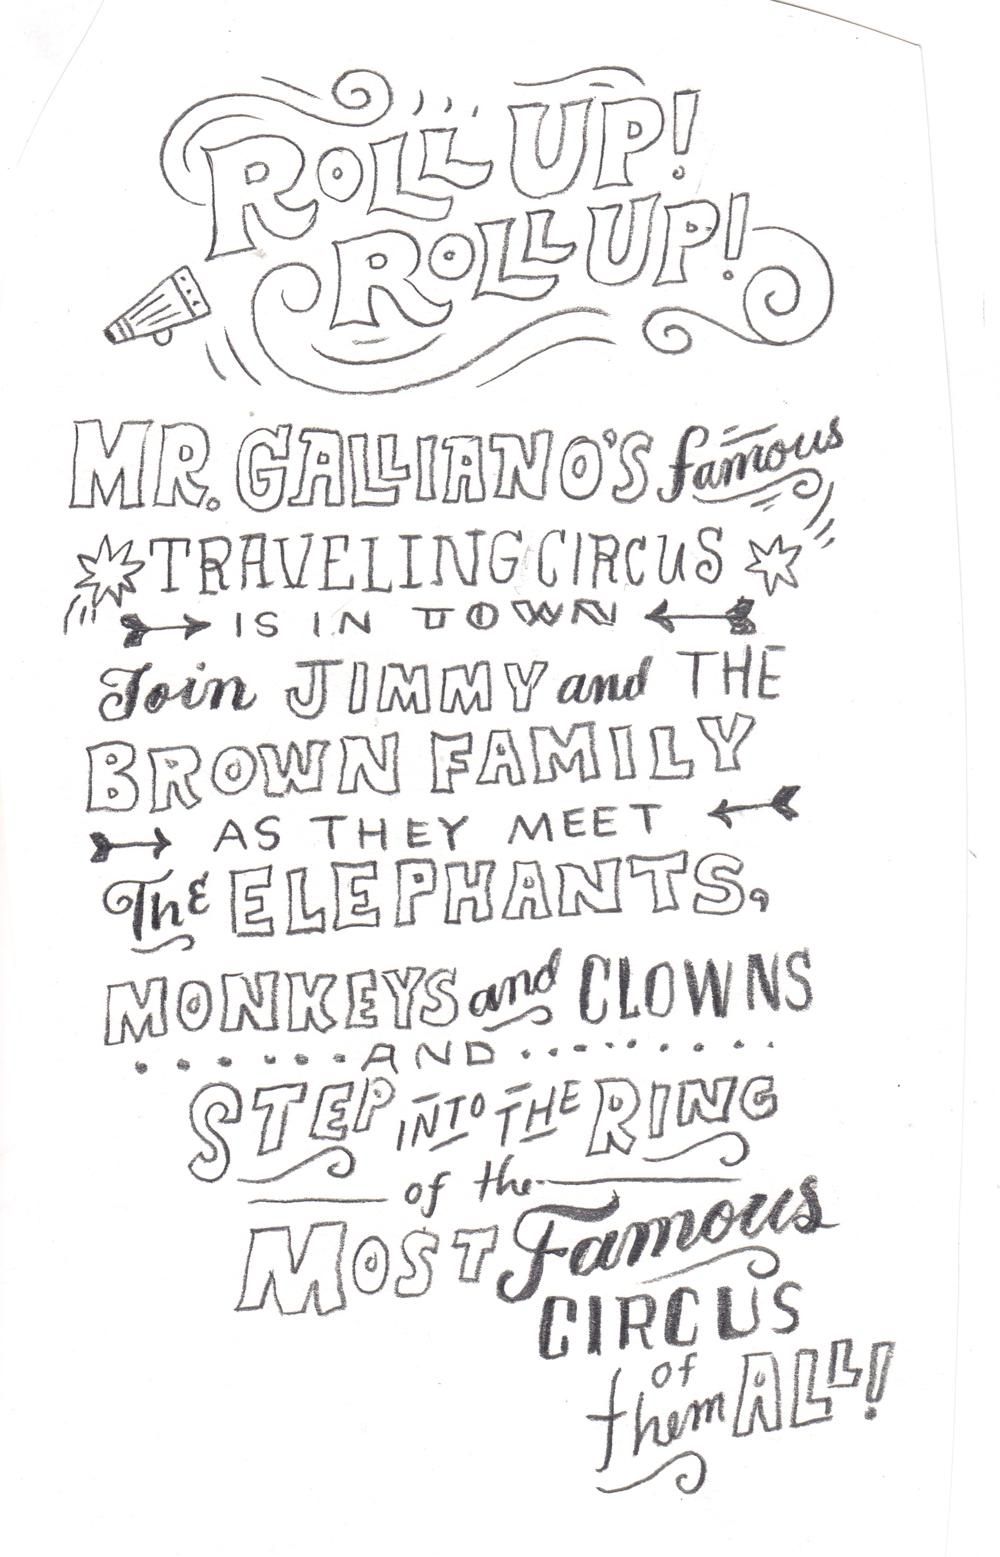 ROLL UP!
ROLL UP!
MR. GALLIANO'S famous
TRAVELING CIRCUS
IS IN TOWN
Join JIMMY and THE
BROWN FAMILY
AS THEY MEET
The ELEPHANTS,
MONKEYS and CLOWNS
AND
STEP INTO THE RING
of the
MOST Famous
CIRCUS
of
them ALL!